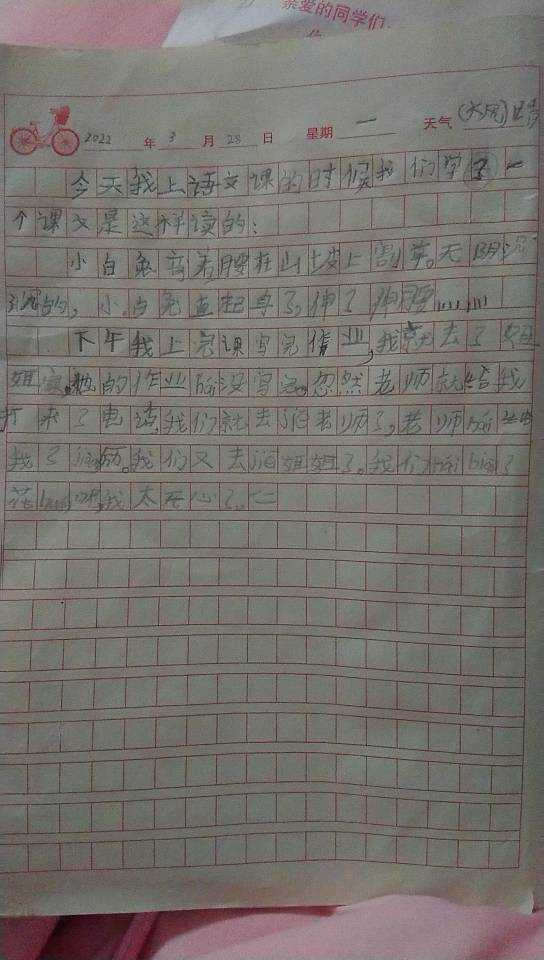 亲爱的同学们
2022 年 3 月 28 日 星期 一 天气 (大风) 晴
今天我上语文课的时候我们学了一
个课文是这样读的:
小白兔弯着腰在山坡上割草。天阴沉
沉的,小白兔直起身子,伸了伸腰,,,,,,
下午我上完课写完作业,我就去了姐
姐家,她的作业hái没写完。忽然老师就给我
打来了电话,我们就去jiē老师了,老师hái给
我了jiǎng励。我们又去jiē姐姐了。我们hái biān了
花 呢,我太开心了。